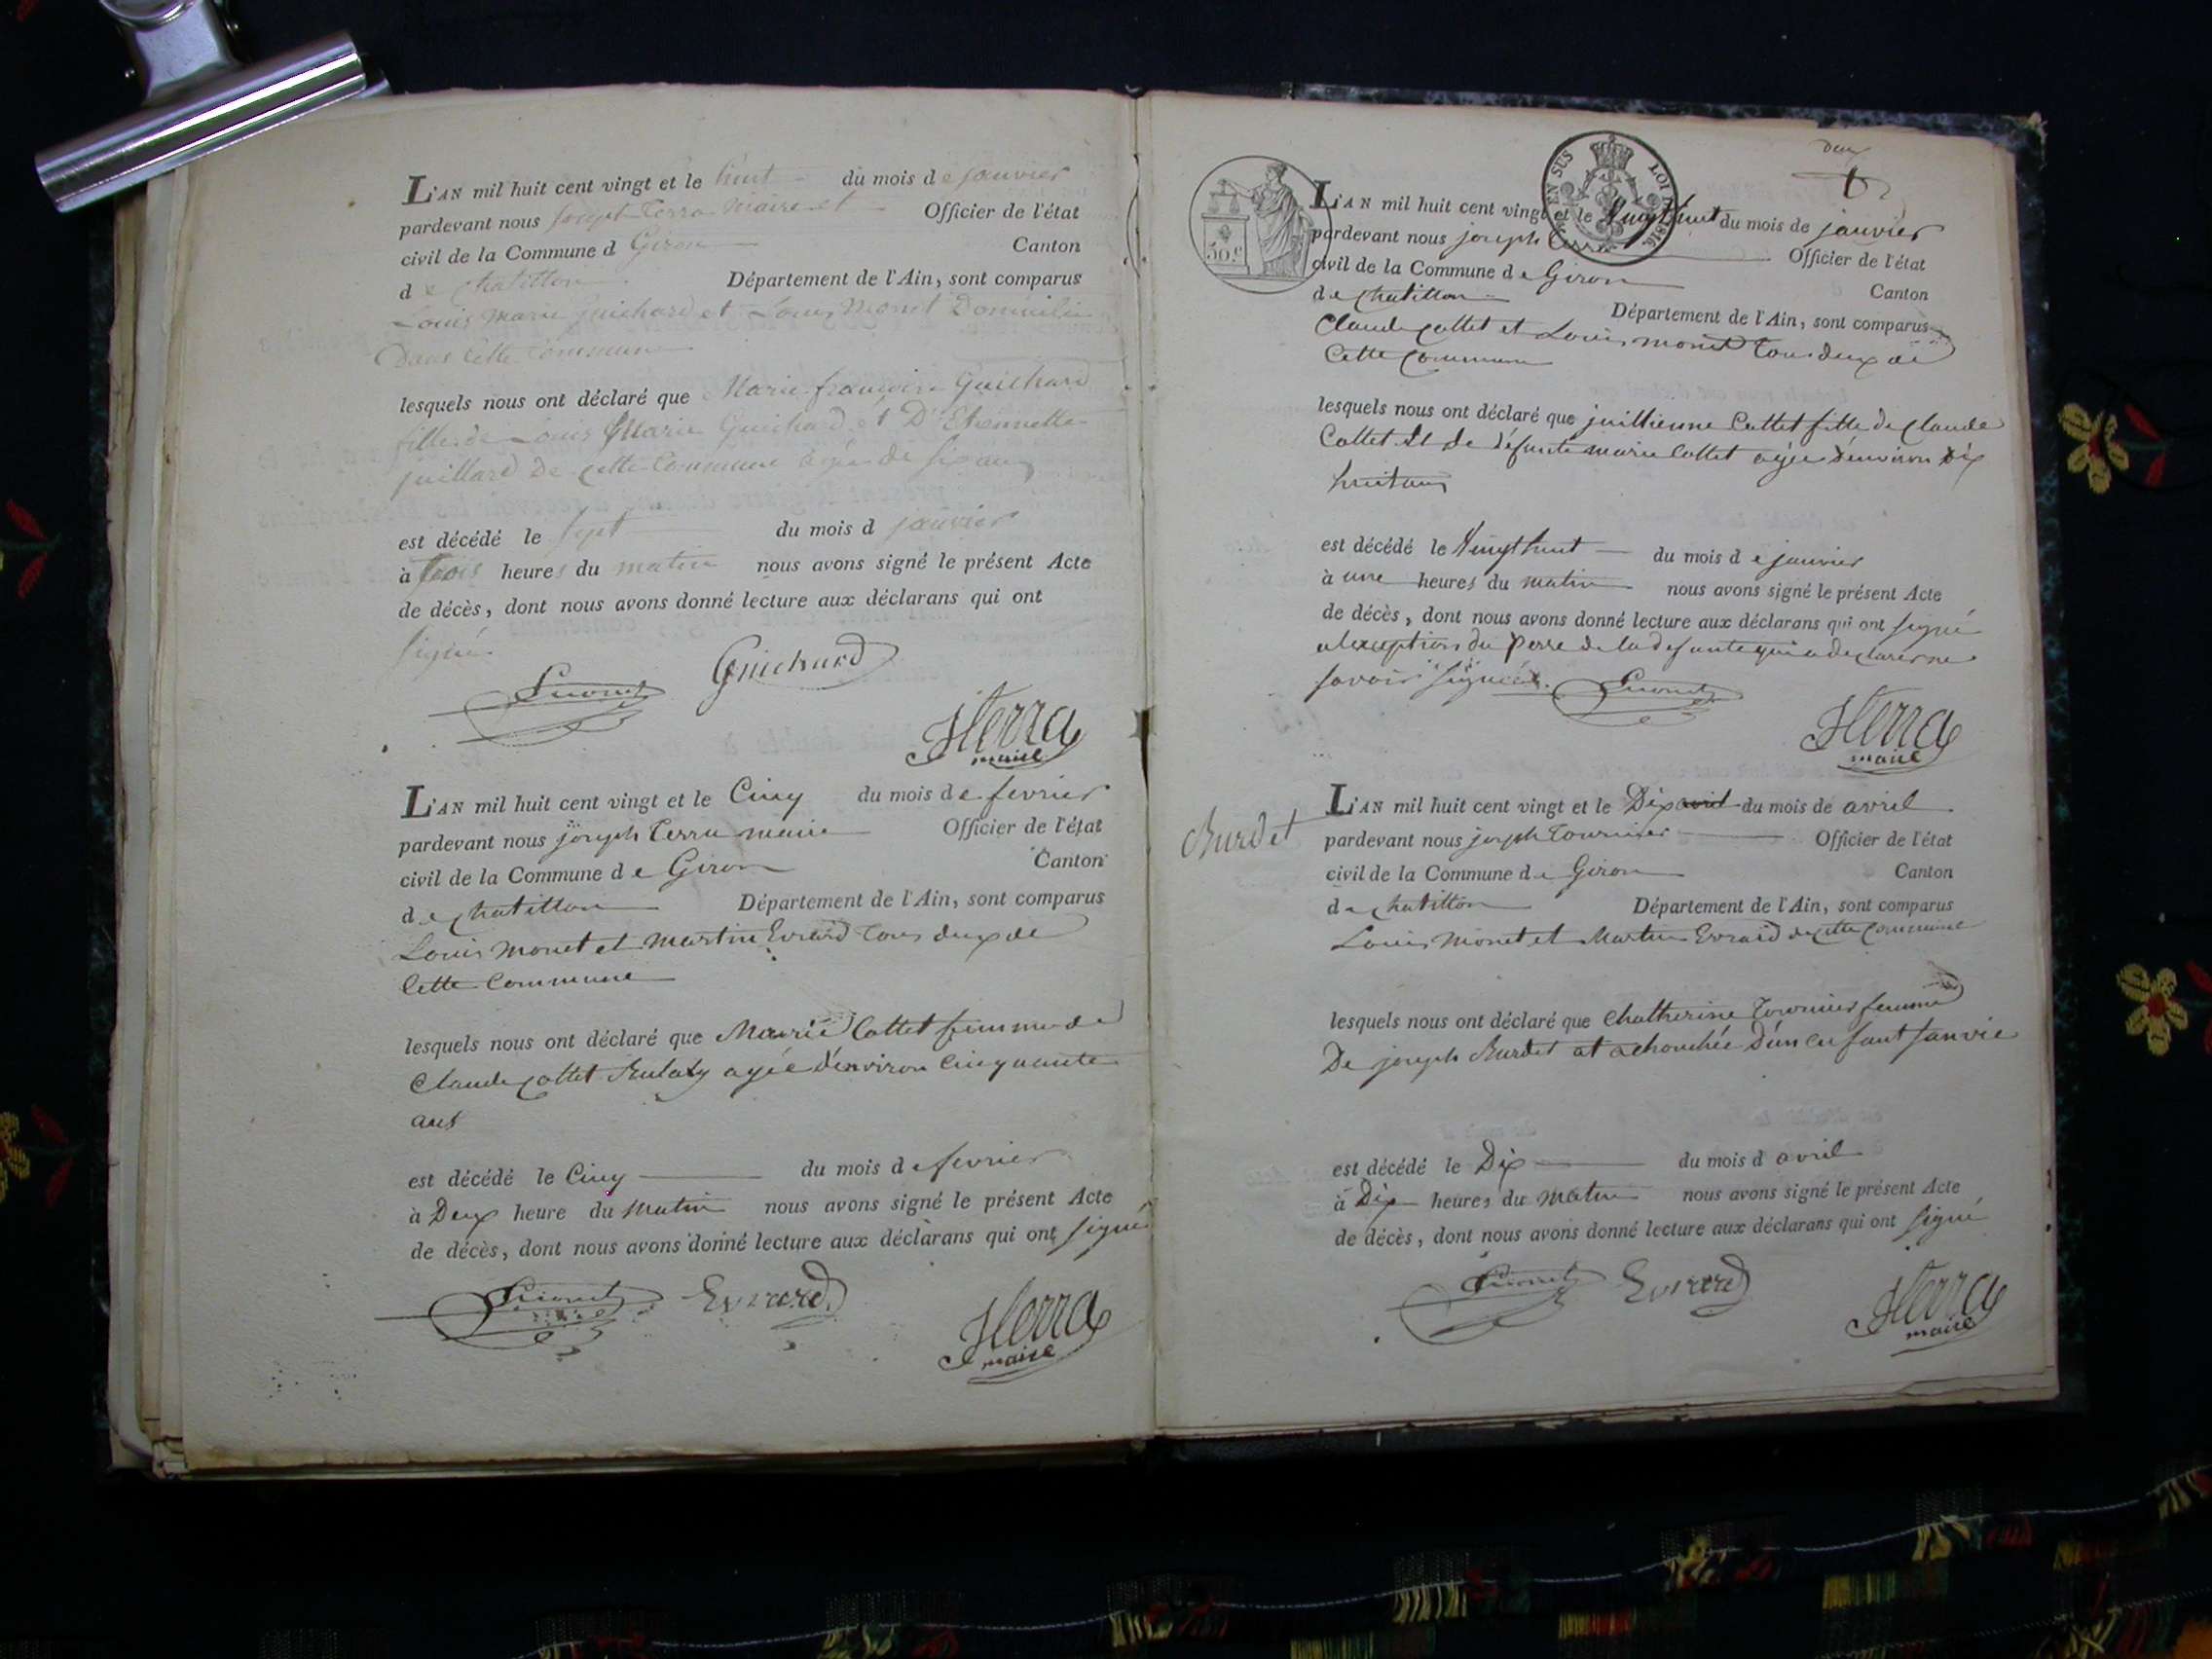 L'AN mil huit cent vingt et le huit du mois de janvier
pardevant nous joseph Terra Maire et Officier de l'état
civil de la Commune d Giron Canton
de chatillon Département de l'Ain, sont comparus
Louis Marie Guichard et Louis Monet Domicilié
Dans Cette Commune
lesquels nous ont déclaré que Marie françoise Guichard
fille de Louis Marie Guichard et D'Etiennette
juillard De Cette Commune agée de six ans
est décédé le sept du mois d janvier
à trois heures du matin nous avons signé le présent Acte
de décès, dont nous avons donné lecture aux déclarans qui ont
signé
LMonet Guichard
JTerra
maire
L'AN mil huit cent vingt et le Cinq du mois de fevrier
pardevant nous joseph Terra maire Officier de l'état
civil de la Commune de Giron Canton
de chatillon Département de l'Ain, sont comparus
Louis Monet et Martin Evrard Tous deux de
Cette Commune
lesquels nous ont déclaré que Marie Cottet femme de
Claude Cottet agée d'environ Cinquante
ans
est décédé le Cinq du mois de fevrier
à Deux heure du Matin nous avons signé le présent Acte
de décès, dont nous avons donné lecture aux déclarans qui ont signé
LMonet Evrard
JTerra
maire
Deux
EN SUS LOI 1816
50 c
L'AN mil huit cent vingt et le Vingt huit du mois de janvier
pardevant nous joseph Terra Officier de l'état
civil de la Commune de Giron Canton
de chatillon Département de l'Ain, sont comparus
Claude Cottet et Louis monet Tous deux de
Cette Commune
lesquels nous ont déclaré que juillienne Cottet fille de Claude
Cottet Et de défunte marie Cottet agée d'environ Dix
huit ans
est décédé le Vingt huit du mois de janvier
à une heures du matin nous avons signé le présent Acte
de décès, dont nous avons donné lecture aux déclarans qui ont signé
a lexception du perre de la defunte qui a declarer ne
savoir signer.
LMonet
JTerra
maire
Burdet
L'AN mil huit cent vingt et le Dix avril du mois de avril
pardevant nous joseph Tournier Officier de l'état
civil de la Commune de Giron Canton
de chatillon Département de l'Ain, sont comparus
Louis Monet et Martin Evrard de cette Commune
lesquels nous ont déclaré que Chatherine Tournier femme
De joseph Burdet at achouchée D'un enfant sanvie
est décédé le Dix du mois d avril
à Dix heures du Matin nous avons signé le présent Acte
de décès, dont nous avons donné lecture aux déclarans qui ont signé
LMonet Evrard
JTerra
maire